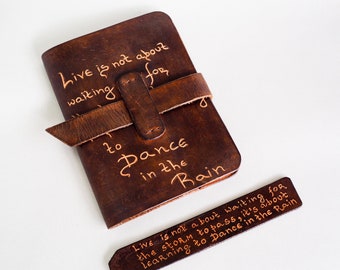 Live is not about
waiting for
to
Dance
in the
Rain
Live is not about waiting for
the storm to pass, it's about
learning to Dance in the Rain